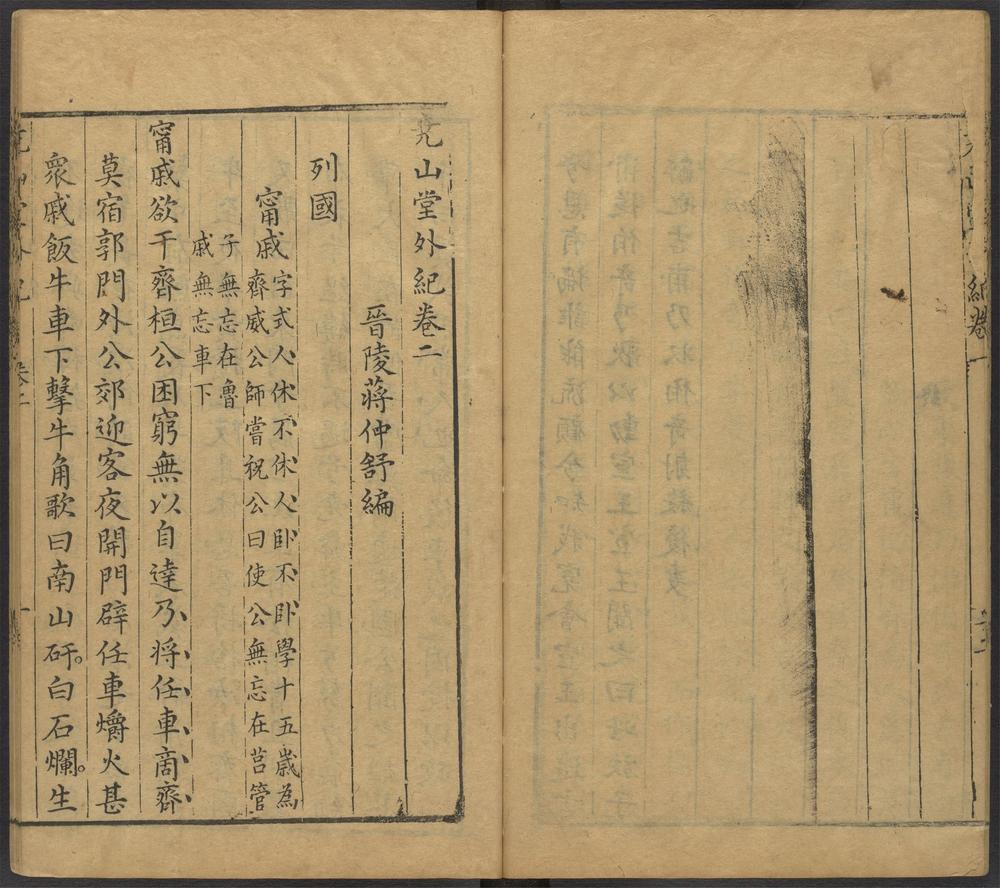 紀卷一
堯山堂外紀卷二
晉陵蔣仲舒編
列國
甯戚字式人休不休人臥不臥學十五歲為
齊威公師嘗祝公曰使公無忘在莒管
子無忘在魯
戚無忘車下
甯戚欲干齊桓公困窮無以自達乃將任車啇齊
莫宿郭門外公郊迎客夜開門辟任車爝火甚
衆戚飯牛車下擊牛角歌曰南山矸。白石爛。生
卷二
一